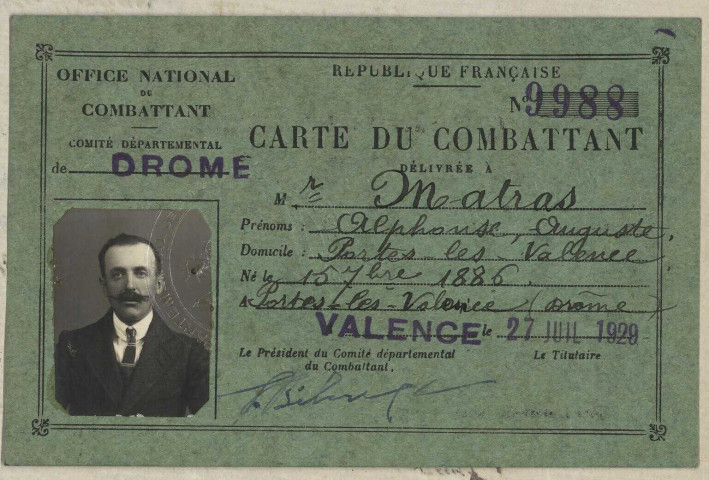 OFFICE NATIONAL
DU
COMBATTANT
COMITÉ DÉPARTEMENTAL
de DROME
RÉPUBLIQUE FRANÇAISE
N° 9988
CARTE DU COMBATTANT
DÉLIVRÉE A
M r Matras
Prénoms : Alphonse, Auguste,
Domicile : Portes les Valence
Né le 15 7bre 1886
A Portes-les-Valence (Drôme)
VALENCE le 27 JUIL 1929
Le Président du Comité départemental
du Combattant,
Le Titulaire